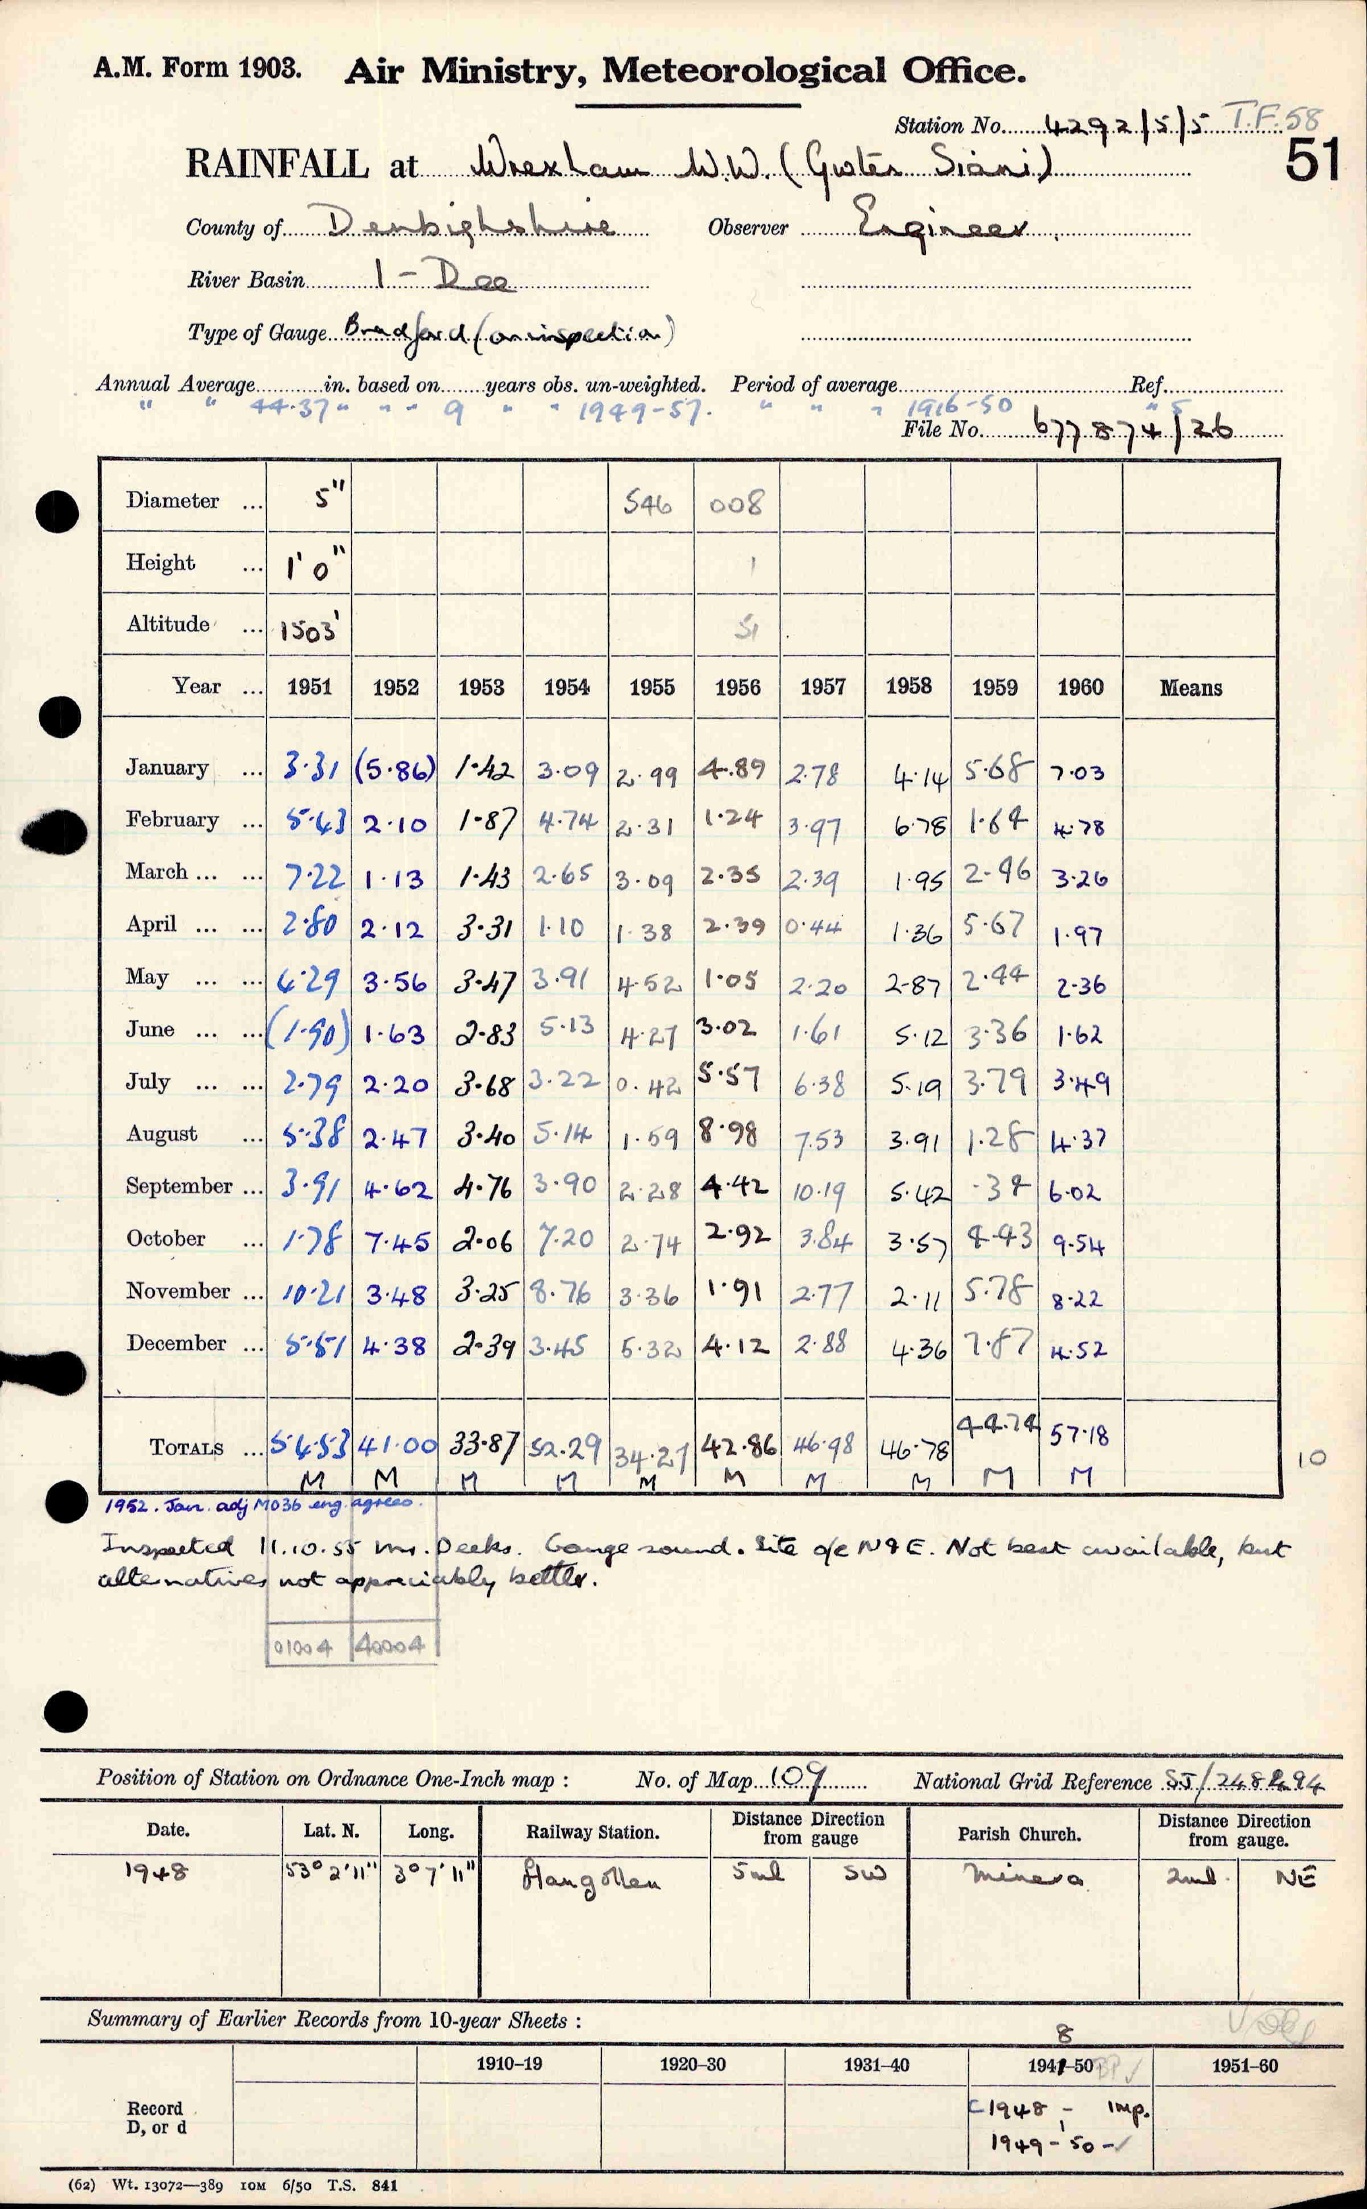 A.M. Form 1903. Air Ministry, Meteorological Office.
Station No. 4292/5/5 T.F.58
51
RAINFALL at Wrexham W.W. (Gwter Siani)
County of Denbighshire Observer Engineer
River Basin 1 - Dee
Type of Gauge Bradford (on inspection)
Annual Average in. based on years obs. un-weighted. Period of average Ref.
" " 44.37 " " " 9 " " 1949-57. " " " 1916-50 " 5
File No. 677874/26
Diameter ... 5" 546 008
Height ... 1' 0" 1
Altitude ... 1503' 51
Year ... 1951 1952 1953 1954 1955 1956 1957 1958 1959 1960 Means
January ... 3.31 (5.86) 1.42 3.09 2.99 4.89 2.78 4.14 5.68 7.03
February ... 5.43 2.10 1.87 4.74 2.31 1.24 3.97 6.78 1.64 4.78
March ... ... 7.22 1.13 1.43 2.65 3.09 2.35 2.39 1.95 2.96 3.26
April ... ... 2.80 2.12 3.31 1.10 1.38 2.39 0.44 1.36 5.67 1.97
May ... ... 4.29 3.56 3.47 3.91 4.52 1.05 2.20 2.87 2.44 2.36
June ... ... (1.90) 1.63 2.83 5.13 4.27 3.02 1.61 5.12 3.36 1.62
July ... ... 2.79 2.20 3.68 3.22 0.42 5.57 6.38 5.19 3.79 3.49
August ... 5.38 2.47 3.40 5.14 1.59 8.98 7.53 3.91 1.28 4.37
September ... 3.91 4.62 4.76 3.90 2.28 4.42 10.19 5.42 .34 6.02
October ... 1.78 7.45 2.06 7.20 2.74 2.92 3.84 3.57 4.43 9.54
November ... 10.21 3.48 3.25 8.76 3.36 1.91 2.77 2.11 5.78 8.22
December ... 5.51 4.38 2.39 3.45 5.32 4.12 2.88 4.36 7.87 4.52
TOTALS ... 54.53 41.00 33.87 52.29 34.27 42.86 46.98 46.78 44.74 57.18
M M M M M M M M M M
10
1952. Jan. adj MO3b eng. agrees.
Inspected 11.10.55 Mr. Deeks. Gauge sound. Site o/e N & E. Not best available, but
alternatives not appreciably better.
01004 40004
Position of Station on Ordnance One-Inch map : No. of Map 109 National Grid Reference SJ/248494
Date. Lat. N. Long. Railway Station. Distance from gauge Direction Parish Church. Distance from gauge. Direction
1948 53° 2' 11" 3° 7' 11" Llangollen 5ml SW Minera 2ml. NE
Summary of Earlier Records from 10-year Sheets :
8
1910-19 1920-30 1931-40 1941-50 1951-60
Record
D, or d
C 1948 - Imp.
1949-50-✓
(62) Wt. 13072—389 10M 6/50 T.S. 841